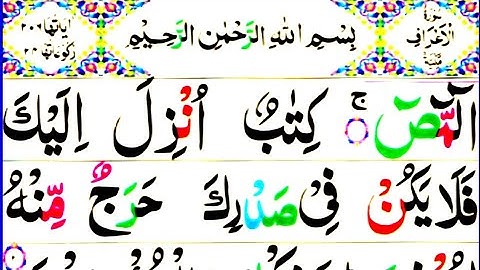 سُورَةُ الْاَعْرَافِ مَكِّيَّةٌ
بِسْمِ اللهِ الرَّحْمٰنِ الرَّحِيْمِ
اٰيَاتُهَا ٢٠٦ رُكُوْعَاتُهَا ٢٤
الٓمّٓصٓ ۚ كِتٰبٌ اُنْزِلَ اِلَيْكَ
فَلَا يَكُنْ فِيْ صَدْرِكَ حَرَجٌ مِّنْهُ